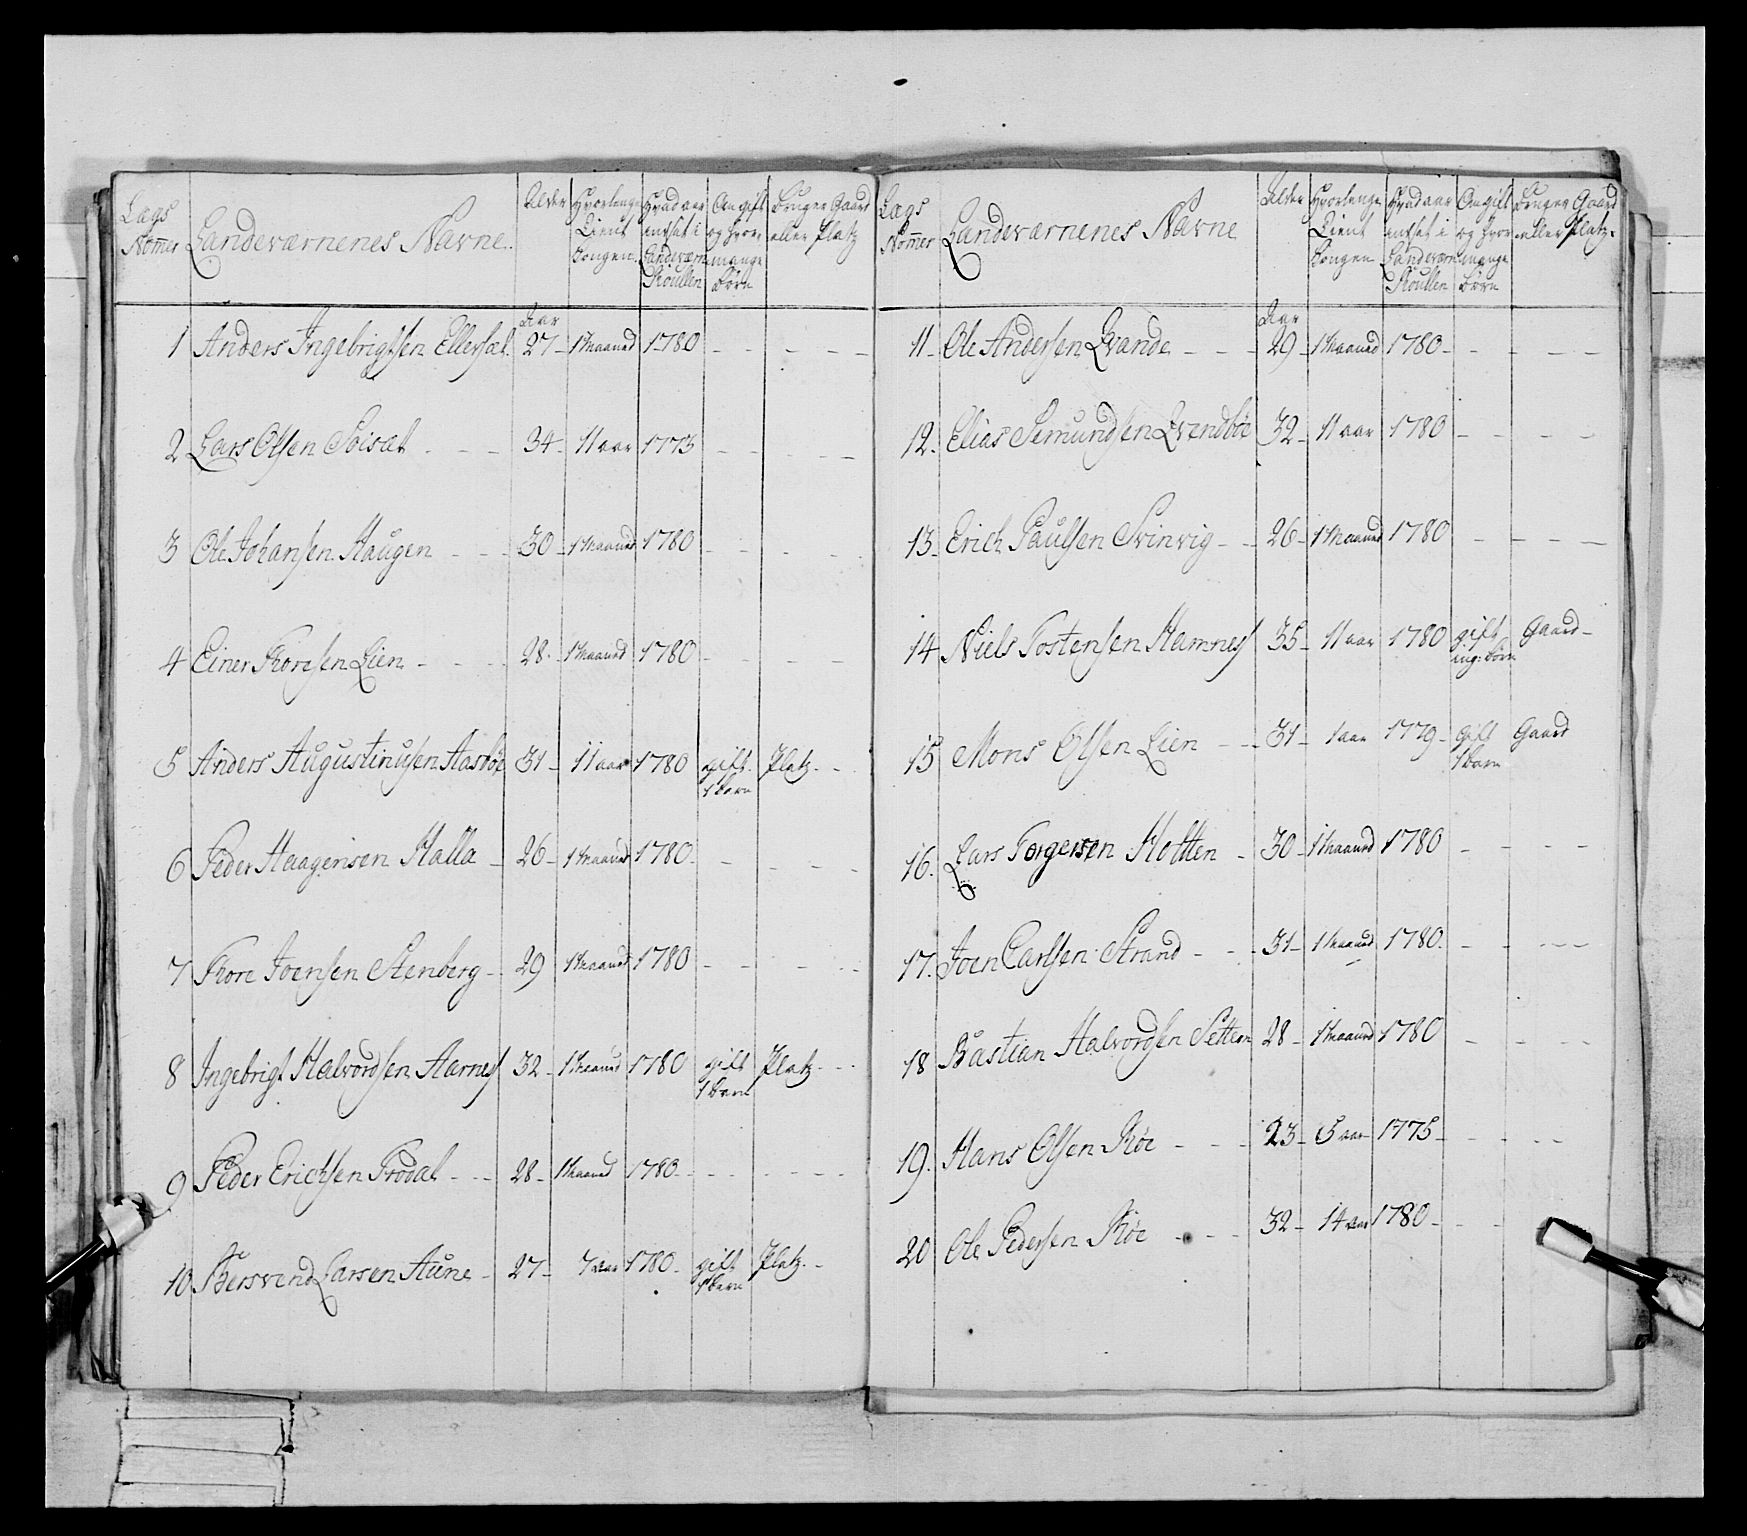 Lægs Nommer | Landeværnenes Navne. | Alder | Hvorlenge Tient Kongen. | Hvad aar indsat i Landeværn Roullen | Om gift og hvor mange Børn | Bruger Gaard eller Platz
Aar
1 Anders Ingebrigtsen Ellersæt. 27 - 1 Maaned 1780 - - - -
2 Lars Olsen Soisæt - - - 34 - 11 aar 1773 - - - -
3 Ole Johansen Haugen - - - 30 - 1 Maaned 1780 - - - -
4 Einer Toresen Lien - - - 28 - 1 Maaned 1780 - - - -
5 Anders Augustinusen Aasbøe 31 - 11 aar 1780 gift Platz. -
1 Barn
6 Peder Haagensen Halla - 26 - 1 Maaned 1780 - - - -
7 Tore Joensen Stenberg - 29 1 Maaned 1780 - - - -
8 Ingebrigt Halvordsen Aarnes 32 - 1 Maaned 1780 gift Platz - -
1 Barn
9 Peder Erichsen Trodal - - - 28 - 1 Maaned 1780 - - - -
10 Bersvend Larsen Aune - 27 - 7 aar 1780 - gift Platz. -
1 Barn
Lægs Nommer | Landeværnenes Navne | Alder | Hvorlenge Tient Kongen | Hvad aar indsat i Landeværn Roullen | Om gift og hvor mange Børn | Bruger Gaard eller Platz.
Aar
11 - Ole Andersen Qvande - - - 29 - 1 Maaned 1780 - - - -
12. Elias Semundsen Qvendbøe 32 - 11 aar 1780 - - - -
13 - Erich Paulsen Svinvig - - 26 - 1 Maaned 1780 - - - -
14 Niels Tostensen Hamnes 35 - 11 aar 1780 gift Gaard -
ing: Børn
15 Mons Olsen Lien - - 31 - 1 aar 1779 - gift Gaard
1 Barn
16. Lars Torgersen Holten - 30 - 1 Maaned 1780 - - - -
17. Joen Carlsen Strand - - - 31 - 1 Maaned 1780. - - - -
18 Bastian Halvordsen Setten 28 - 1 Maaned 1780 - - - -
19. Hans Olsen Røe - - - 23 - 5 aar 1775 - - - -
20 Ole Pedersen Røe - - - 32 - 14 aar 1780 - - -